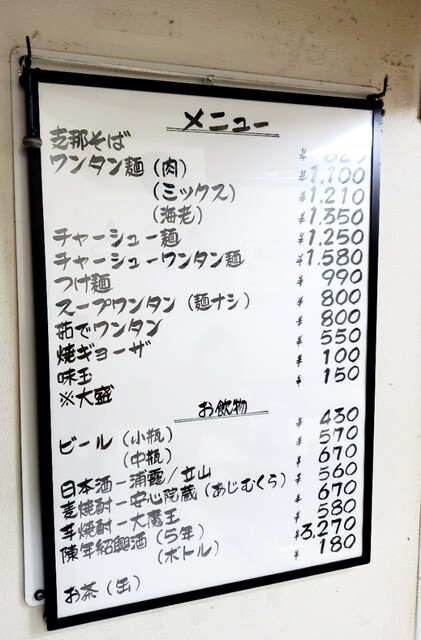 メニュー
支那そば
ワンタン麺（肉） ¥1,100
（ミックス） ¥1,210
（海老） ¥1,350
チャーシュー麺 ¥1,250
チャーシューワンタン麺 ¥1,580
つけ麺 ¥990
スープワンタン（麺ナシ） ¥800
茹でワンタン ¥800
焼ギョーザ ¥550
味玉 ¥100
※大盛 ¥150
お飲物
ビール（小瓶） ¥430
（中瓶） ¥570
日本酒ー浦霞/立山 ¥670
麦焼酎ー安心院蔵（あじむくら） ¥560
芋焼酎ー大魔王 ¥670
陳年紹興酒（5年） ¥580
（ボトル） ¥3,270
お茶（缶） ¥180